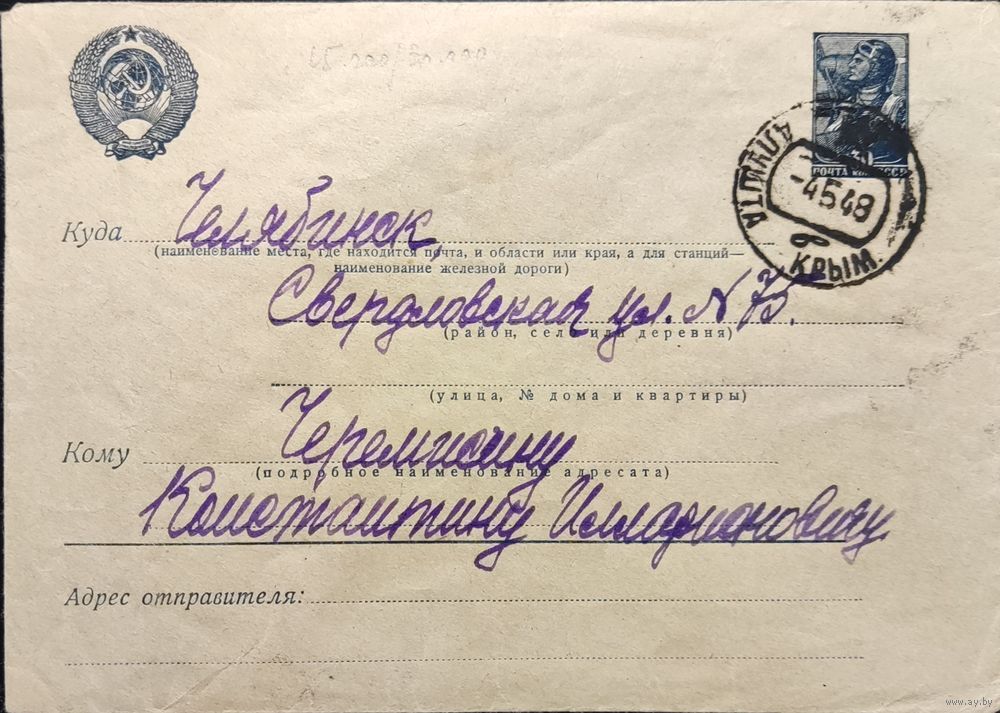 ПОЧТА СССР
АЛУШТА
-4548
б
КРЫМ.
Куда Челябинск,
(наименевание места, где находится почта, и области или края, а для станций—
наименование железной дороги)
Свердловская ул. N 75.
(район, село или деревня)
(улица, № дома и квартиры)
Кому Черемисину
(подробное наименование адресата)
Константину Илларионовичу
Адрес отправителя:
www.ay.by